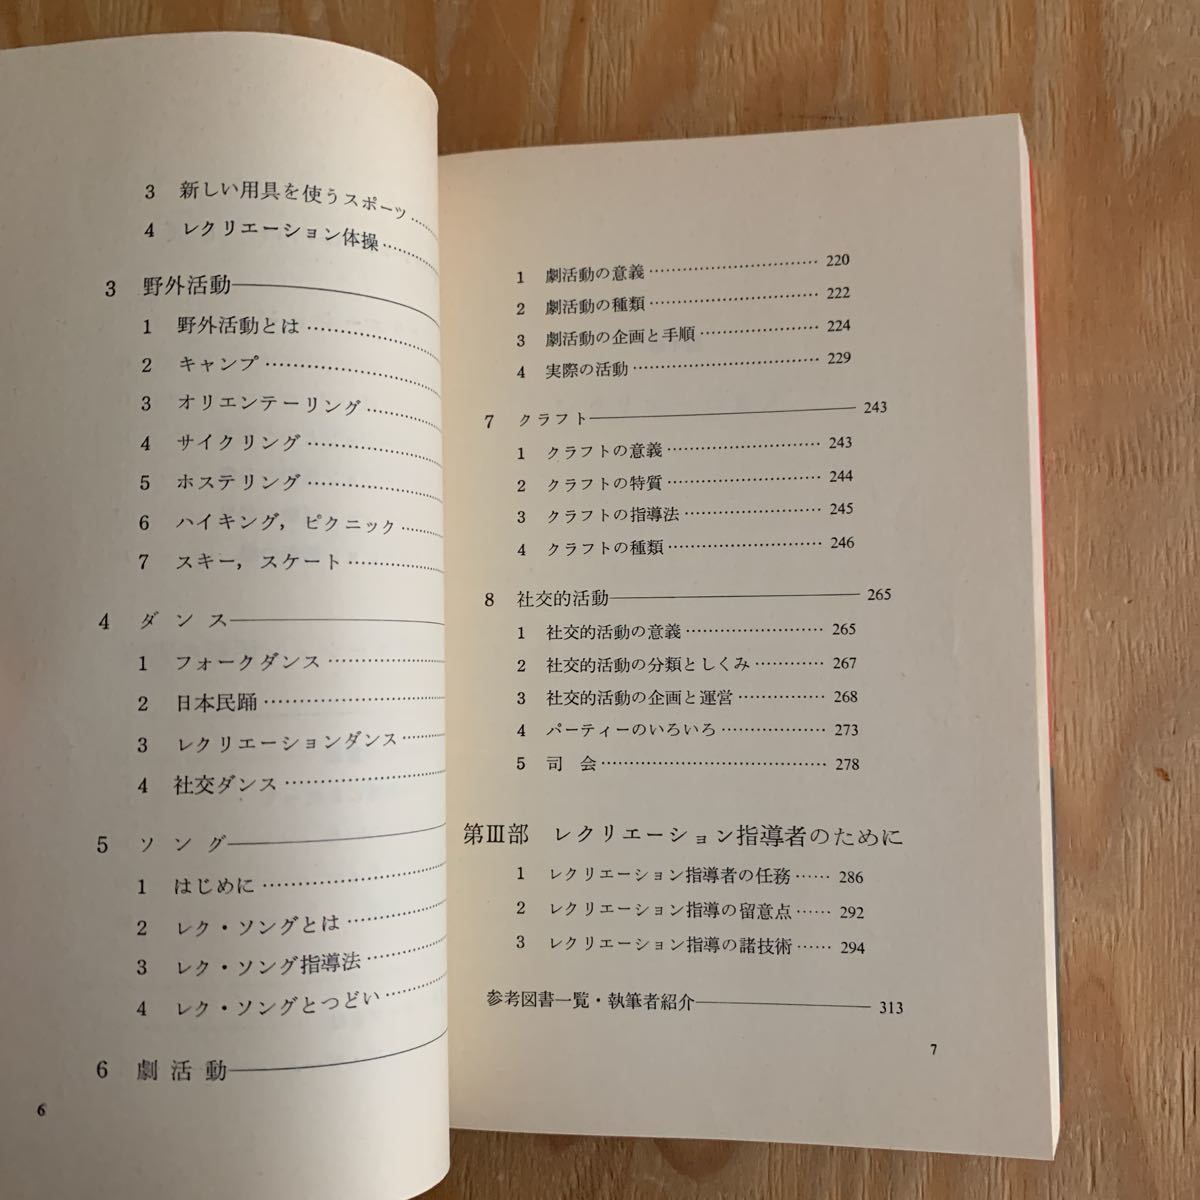 3 新しい用具を使うスポーツ……
4 レクリエーション体操……
3 野外活動――
1 野外活動とは……
2 キャンプ……
3 オリエンテーリング……
4 サイクリング……
5 ホステリング……
6 ハイキング，ピクニック……
7 スキー，スケート……
4 ダンス――
1 フォークダンス……
2 日本民踊……
3 レクリエーションダンス……
4 社交ダンス……
5 ソング――
1 はじめに……
2 レク・ソングとは……
3 レク・ソング指導法……
4 レク・ソングとつどい……
6 劇活動――
6
1 劇活動の意義……220
2 劇活動の種類……222
3 劇活動の企画と手順……224
4 実際の活動……229
7 クラフト――243
1 クラフトの意義……243
2 クラフトの特質……244
3 クラフトの指導法……245
4 クラフトの種類……246
8 社交的活動――265
1 社交的活動の意義……265
2 社交的活動の分類としくみ……267
3 社交的活動の企画と運営……268
4 パーティーのいろいろ……273
5 司会……278
第Ⅲ部 レクリエーション指導者のために
1 レクリエーション指導者の任務……286
2 レクリエーション指導の留意点……292
3 レクリエーション指導の諸技術……294
参考図書一覧・執筆者紹介――313
7